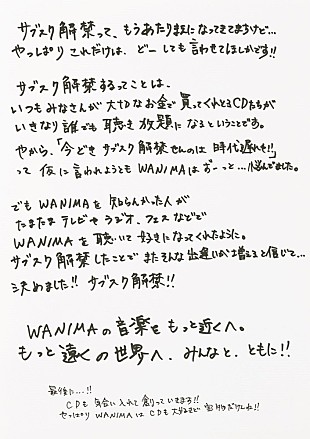 サブスク解禁って、もうあたりまえになってきてますけど…
やっぱり これだけは、どーしても言わせてほしいです!!
サブスク解禁するってことは、
いつもみなさんが 大切なお金で買ってくれとるCDたちが
いきなり誰でも聴き放題になるということです。
やから、「今どき サブスク解禁せんのは 時代遅れも!!」
って 仮に言われようとも WANIMAはずーっと…悩んでました。
でもWANIMAを 知らんかった人が
たまたまテレビや ラジオ、フェスなどで
WANIMAを聴いて好きになってくれたように。
サブスク解禁したことで またそんな出逢いが増えると信じて…
決めました!! サブスク解禁!!
WANIMAの音楽をもっと近くへ。
もっと遠くの世界へ、みんなと、ともに!!
最後に…!!
CDも 気合い入れて創っていきます!!
やっぱり WANIMAはCDも大好きで